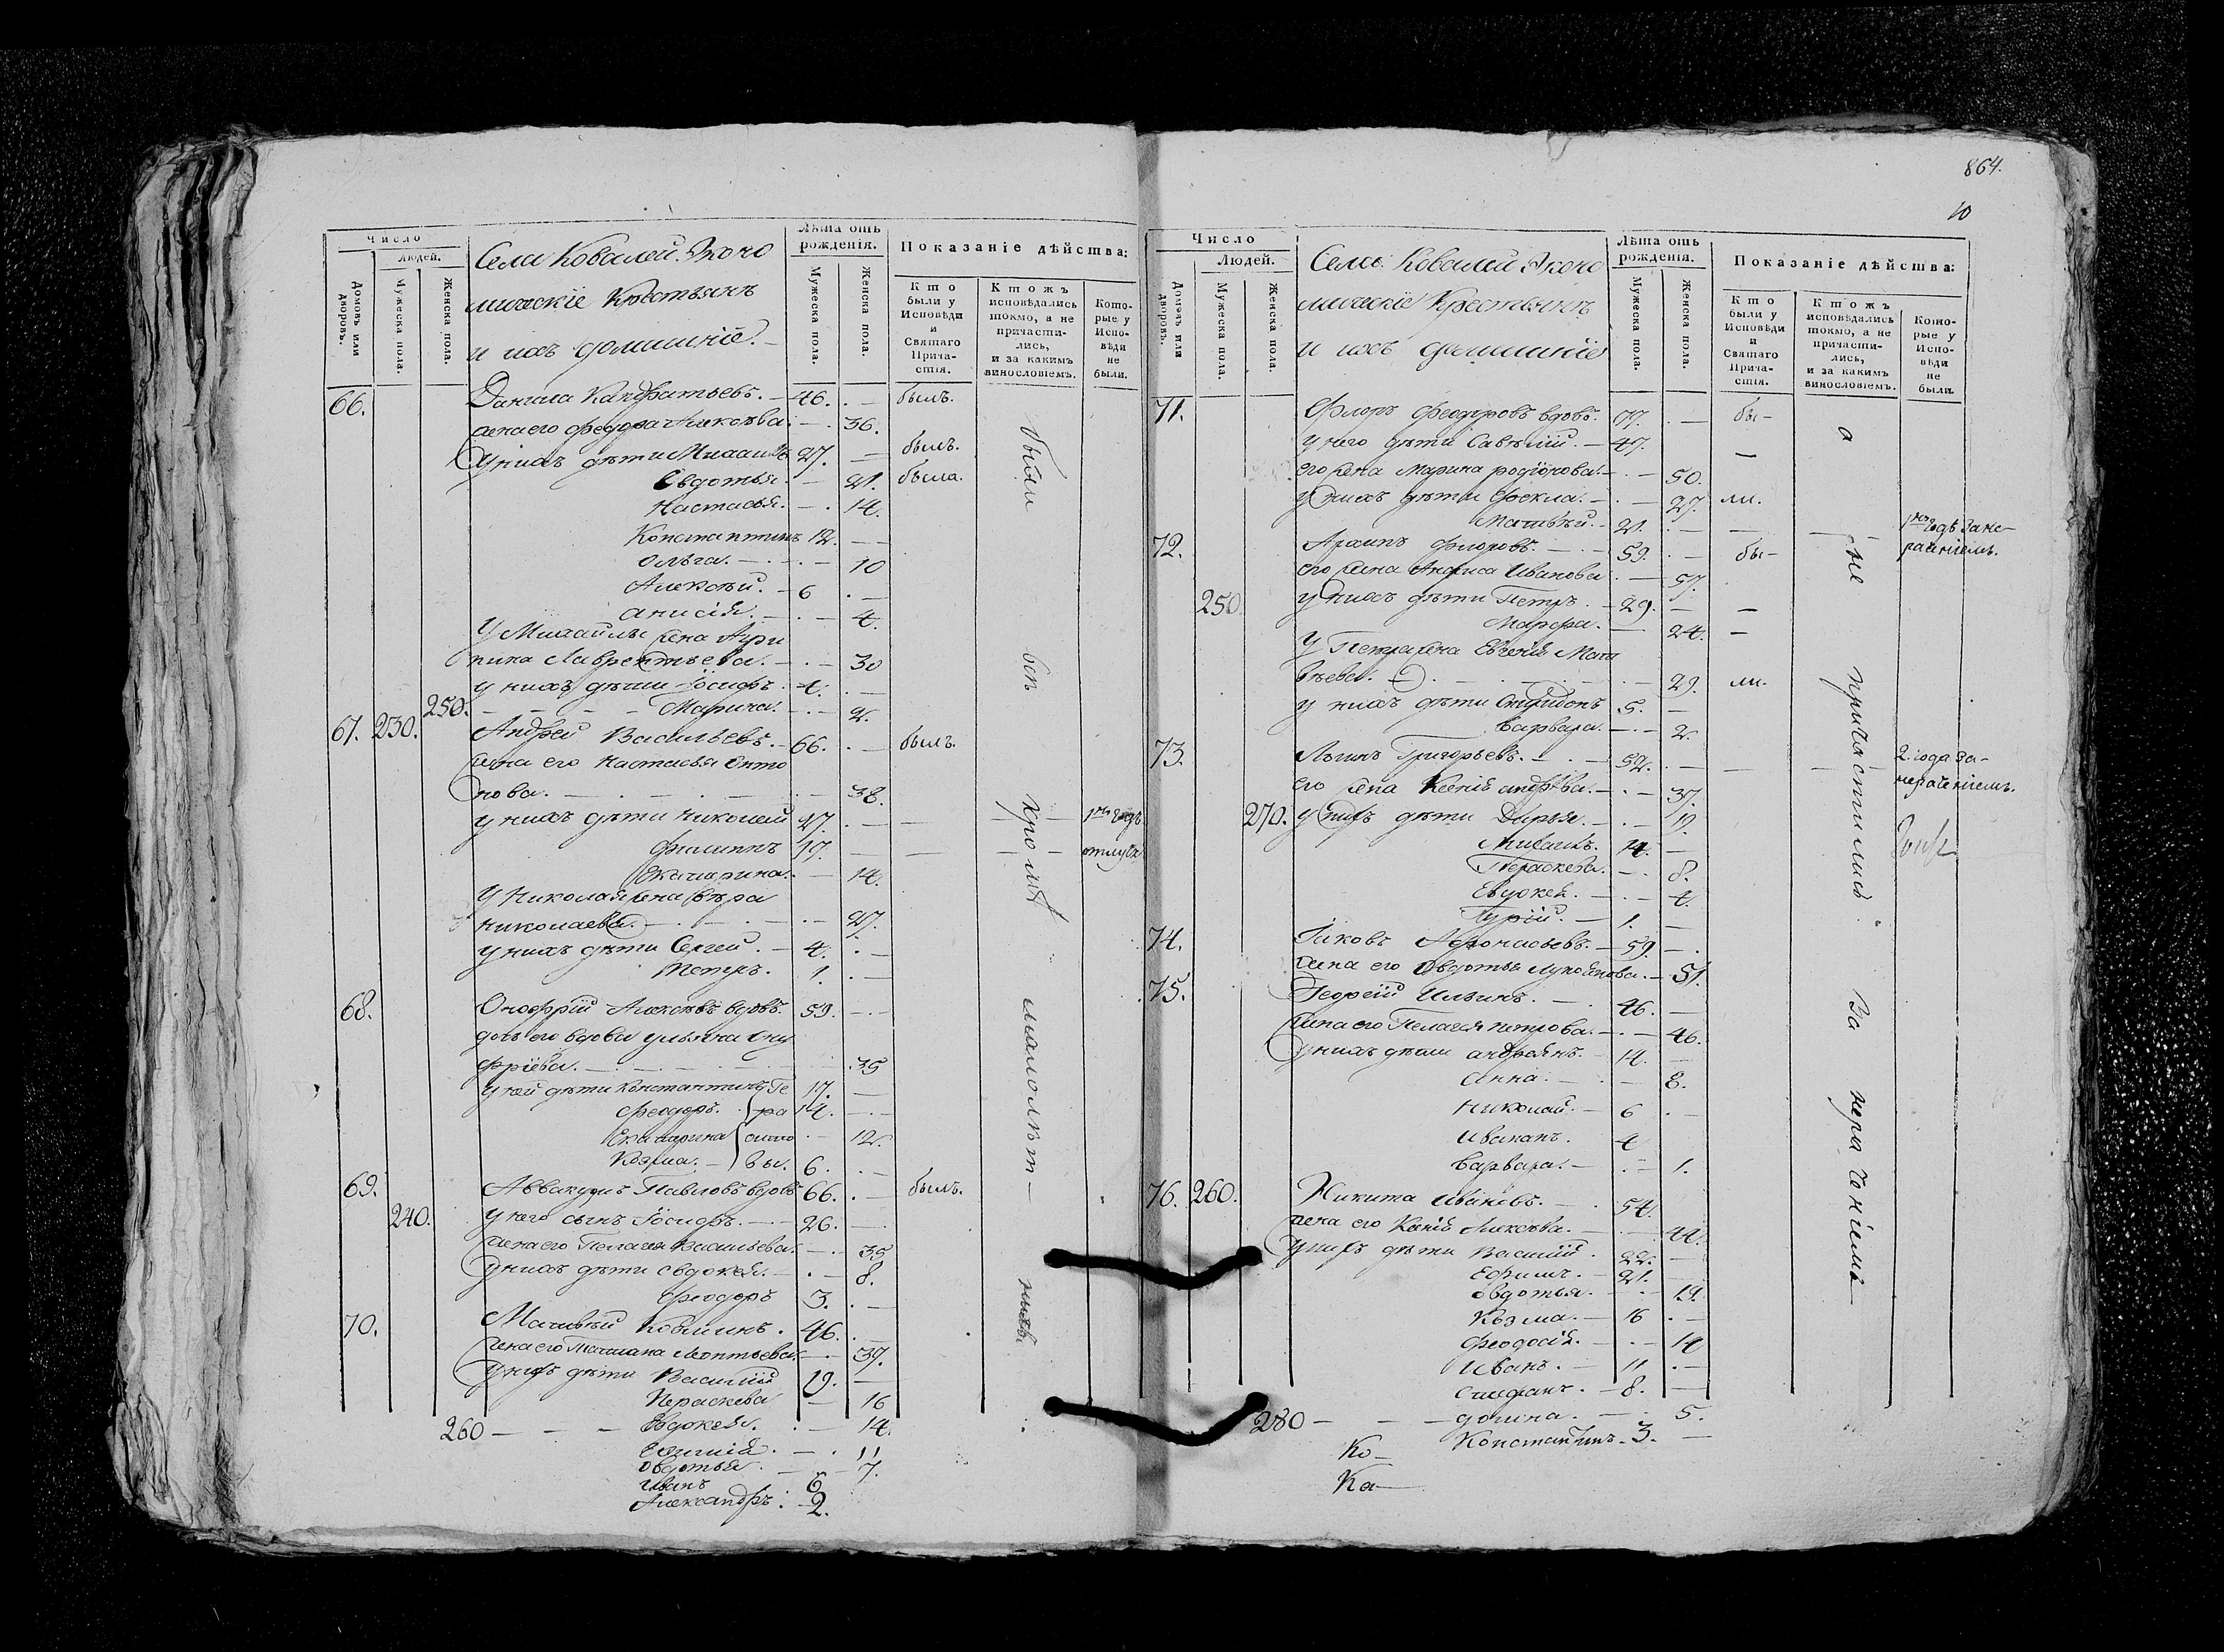 864.
10
Число
Людей.
Домовъ или дворовъ.
Мужеска пола.
Женска пола.
Села Ковалей Эконо
мическіе Крестьянъ
и ихъ домашніе.
Лѣта отъ рожденія.
Мужеска пола.
Женска пола.
Показаніе дѣйства:
Кто были у Исповѣди и Святаго Причастія.
Ктожъ исповѣдались токмо, а не причастились, и за какимъ винословіемъ.
Которые у Исповѣди не были.
66. Данила Кандратьевъ. 46. былъ.
жена его Федора Алексѣва. 36.
У нихъ дѣти Михаилъ 27. былъ.
Евдотья. 21. была.
Настасья. 14.
Константинъ 12.
Ольга. 10
Алексѣй. 6
Анисія. 4.
У Михаилы жена Агри
пина Лаврентьева. 30
у нихъ дѣти Іосифъ. 4.
250. Марина. 2.
67. 230. Андрей Васильевъ. 66. былъ.
жена его Настасья Анто
нова. 38.
у нихъ дѣти Николай 27. 1й годъ
Филиппъ 17. отлуч
Екатерина. 14.
У Николая жена Вѣра
Николаева. 27.
у нихъ дѣти Сергей. 4.
Петръ. 1.
68. Онофрій Алексѣвъ вдовъ. 59.
дочь его вдова Ульяна Ону
фріева. 35
у ней дѣти Константинъ Ге 17.
Феодоръ. ра 14.
Екатерина симо 12.
Козма. вы. 6.
69. Аввакумъ Павловъ вдовъ 66. былъ.
240. у него сынъ Іосифъ. 26.
жена его Пелагея Васильева. 35
у нихъ дѣти Евдокея. 8.
Феодоръ 3.
70. Матвѣй Козминъ. 46.
жена его Татиана Леонтьева. 39.
у нихъ дѣти Василій 19.
Пераскева 16
260 Евдокея. 14.
Евгенія. 11
Овдотья. 7.
Иванъ 6
Александръ. 2.
были всѣ кромѣ малолѣтныхъ.
Число
Людей.
Домовъ или дворовъ.
Мужеска пола.
Женска пола.
Села Ковалей Эконо
мическіе Крестьянъ
и ихъ домашніе
Лѣта отъ рожденія.
Мужеска пола.
Женска пола.
Показаніе дѣйства:
Кто были у Исповѣди и Святаго Причастія.
Ктожъ исповѣдались токмо, а не причастились, и за какимъ винословіемъ.
Которые у Исповѣди не были.
71. Флоръ Феодоровъ вдовъ. 77. бы-
у него дѣти Савѣлій. 47.
его жена Марина Родіонова. 50.
у нихъ дѣти Фекла. 27. ли.
Матвѣй. 21. 1й годъ за не-
72. Архипъ Флоровъ. 59. бы- раченіемъ.
его жена Анфиса Иванова 57.
250 у нихъ дѣти Петръ. 29.
Марфа. 24.
У Петра жена Евгенія Мат
вѣева. 29. ли.
у нихъ дѣти Спиридонъ 5.
Варвара. 2.
73. Логинъ Григорьевъ. 52. 2. года за-
его жена Ксенія Андрѣва. 37. нераченіемъ.
270. у нихъ дѣти Дарья. 19.
Михаилъ. 14.
Параскева. 8.
Евдокея. 4.
Гурій. 1.
74. Іаковъ Афонасьевъ. 59.
жена его Овдотья Лукоянова. 51.
75. Георгій Ильинъ. 46.
жена его Пелагея Петрова. 46.
у нихъ дѣти Андреянъ. 14.
Анна. 8.
Николай. 6
Иваканъ. 4
Варвара. 1.
76. 260. Никита Ивановъ. 54.
жена его Ксенія Алексѣва. 44.
у нихъ дѣти Василій. 22.
Ефимъ. 21.
Овдотья. 19.
Козма. 16
Феодосія. 14
Иванъ. 11
Стефанъ. 8.
280 Домна. 5.
Константинъ. 3.
Ко-
Ка
а не причастились За нераченіемъ